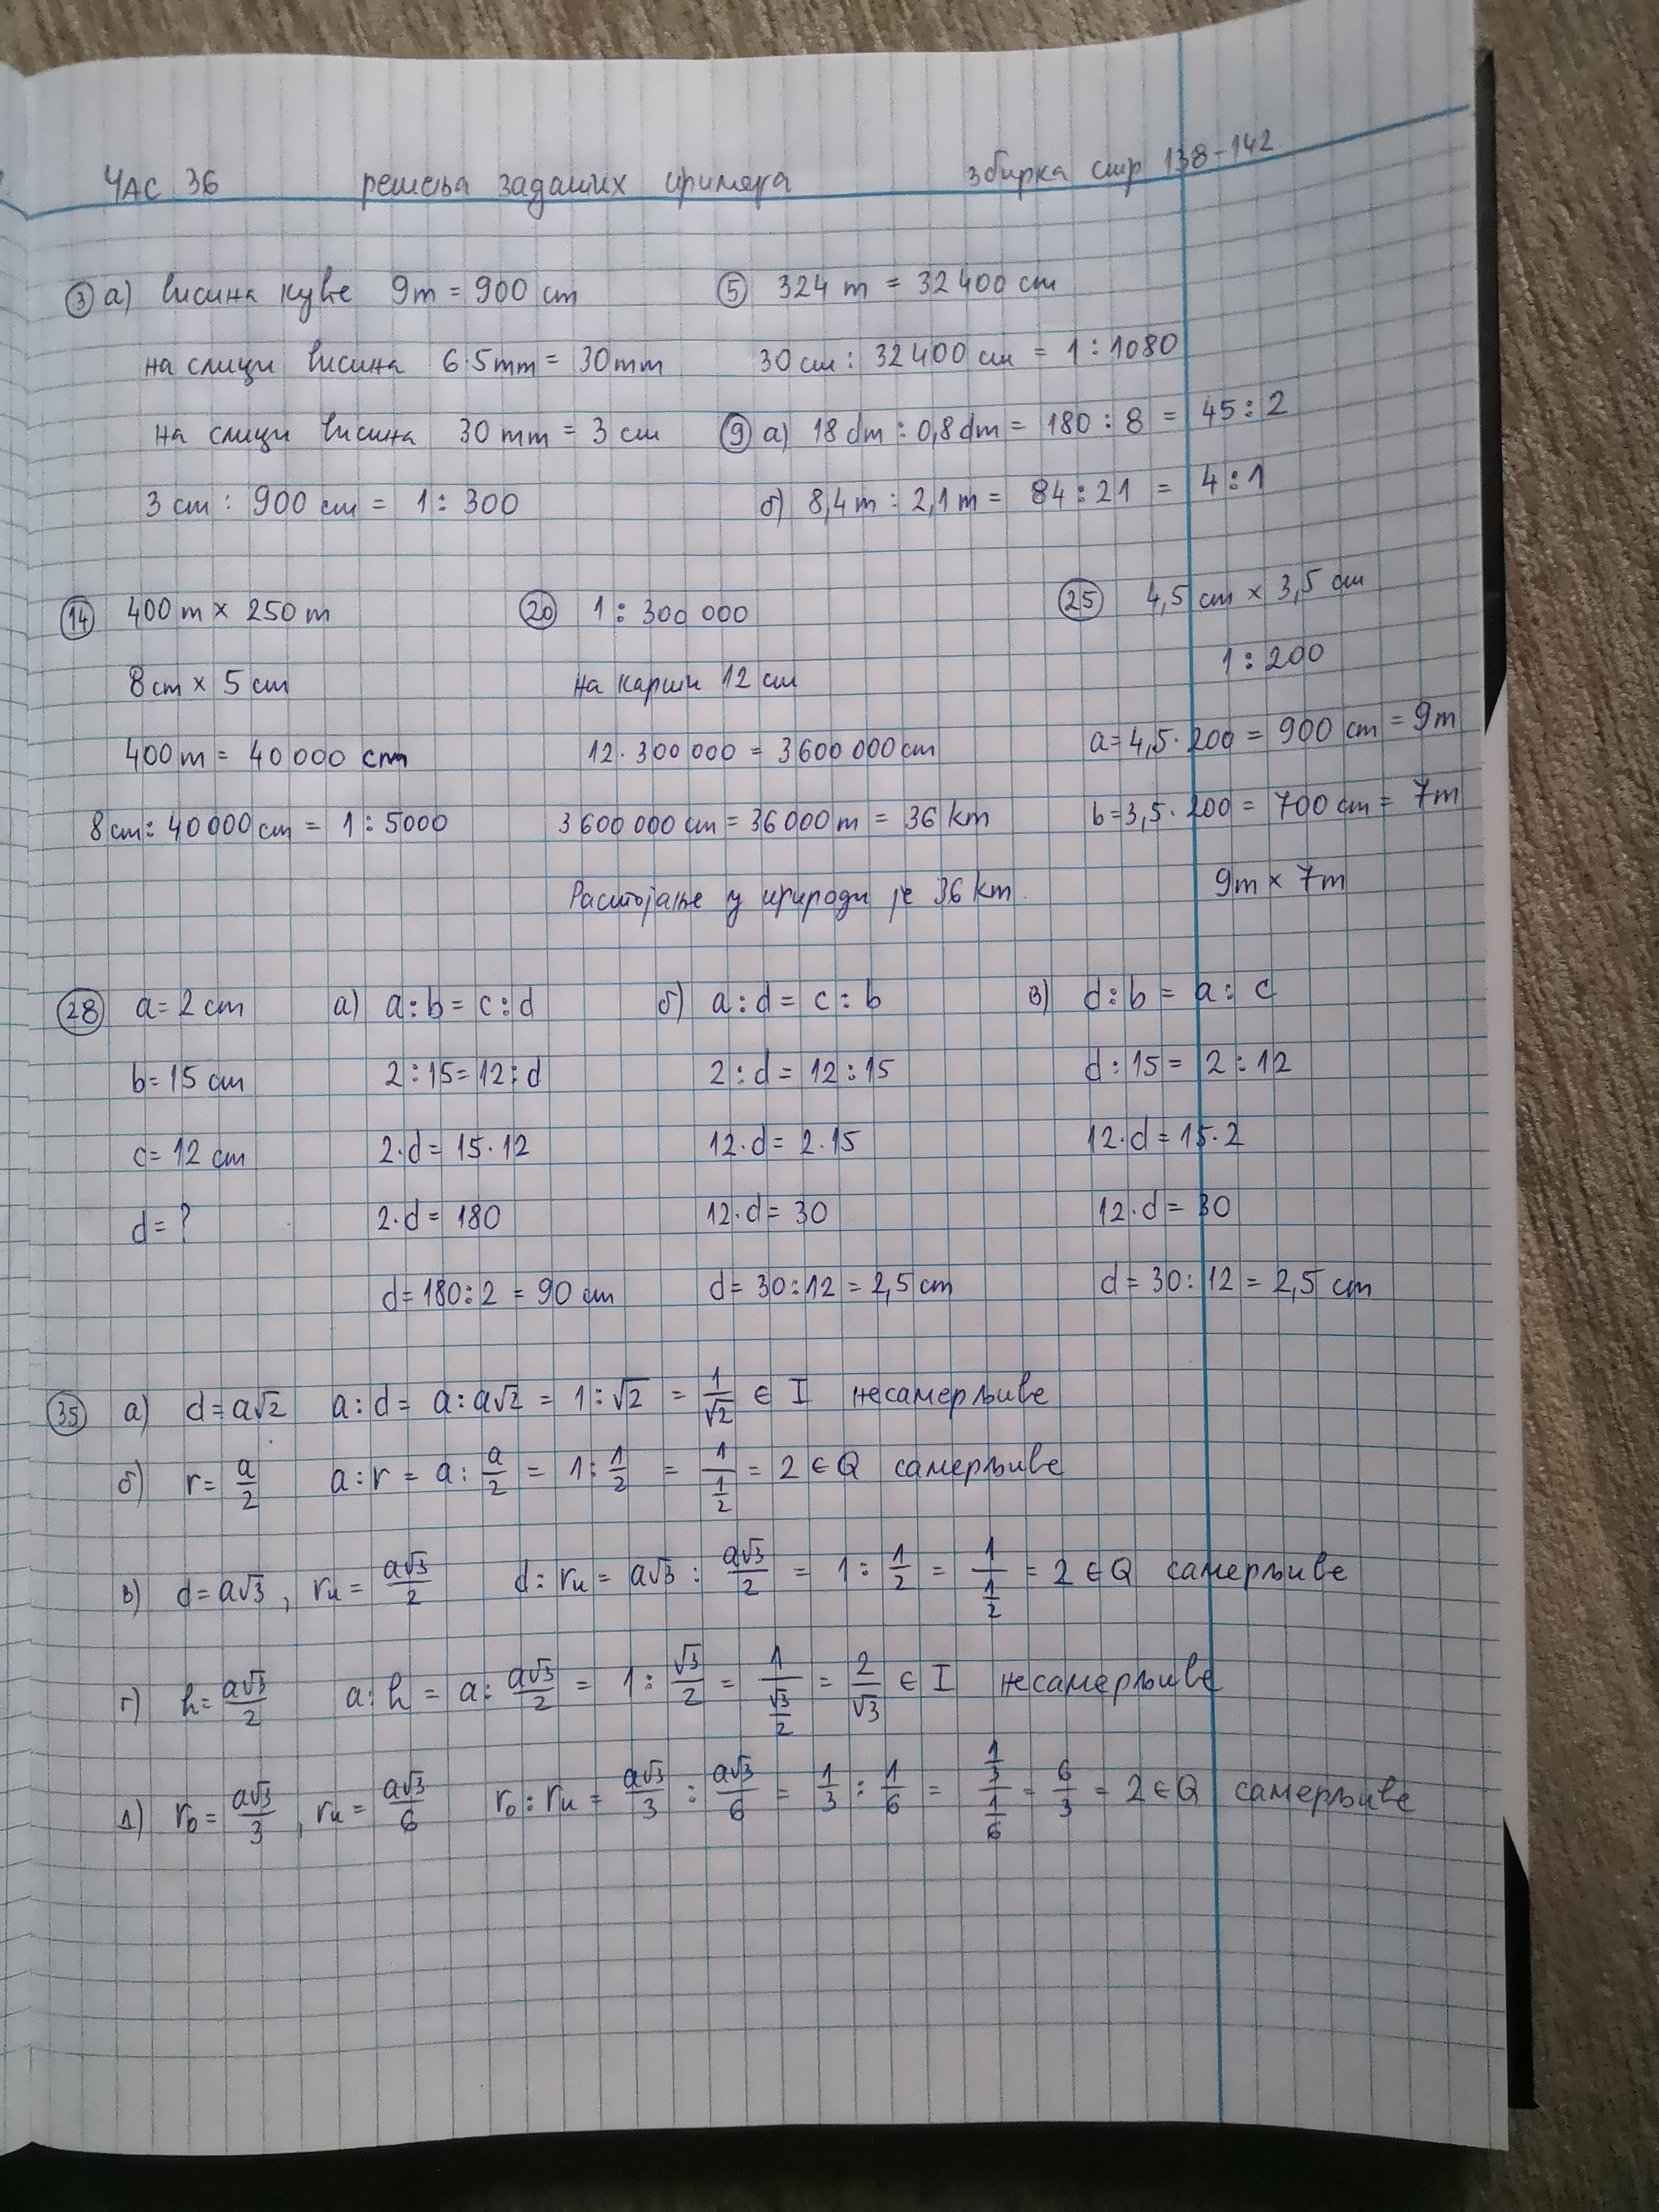 ЧАС 36 решења задатих примера збирка стр 138-142
③ а) висина куће 9m = 900 cm
на слици висина 6·5mm = 30mm
на слици висина 30 mm = 3 cm
3 cm : 900 cm = 1 : 300
⑤ 324 m = 32 400 cm
30 cm : 32 400 cm = 1 : 1080
⑨ а) 18 dm : 0,8 dm = 180 : 8 = 45 : 2
б) 8,4 m : 2,1 m = 84 : 21 = 4 : 1
⑭ 400 m × 250 m
8 cm × 5 cm
400 m = 40 000 cm
8 cm : 40 000 cm = 1 : 5000
⑳ 1 : 300 000
на карти 12 cm
12 · 300 000 = 3 600 000 cm
3 600 000 cm = 36 000 m = 36 km
Растојање у природи је 36 km.
㉕ 4,5 cm × 3,5 cm
1 : 200
a = 4,5 · 200 = 900 cm = 9m
b = 3,5 · 200 = 700 cm = 7m
9m × 7m
㉘ a = 2 cm
b = 15 cm
c = 12 cm
d = ?
а) a : b = c : d
2 : 15 = 12 : d
2 · d = 15 · 12
2 · d = 180
d = 180 : 2 = 90 cm
б) a : d = c : b
2 : d = 12 : 15
12 · d = 2 · 15
12 · d = 30
d = 30 : 12 = 2,5 cm
в) d : b = a : c
d : 15 = 2 : 12
12 · d = 15 · 2
12 · d = 30
d = 30 : 12 = 2,5 cm
㉟ а) d = a√2 a : d = a : a√2 = 1 : √2 = 1/√2 ∈ I несамерљиве
б) r = a/2 a : r = a : a/2 = 1 : 1/2 = 1/(1/2) = 2 ∈ Q самерљиве
в) d = a√3, rᵤ = a√3/2 d : rᵤ = a√3 : a√3/2 = 1 : 1/2 = 1/(1/2) = 2 ∈ Q самерљиве
г) h = a√3/2 a : h = a : a√3/2 = 1 : √3/2 = 1/(√3/2) = 2/√3 ∈ I несамерљиве
д) rₒ = a√3/3, rᵤ = a√3/6 rₒ : rᵤ = a√3/3 : a√3/6 = 1/3 : 1/6 = (1/3)/(1/6) = 6/3 = 2 ∈ Q самерљиве